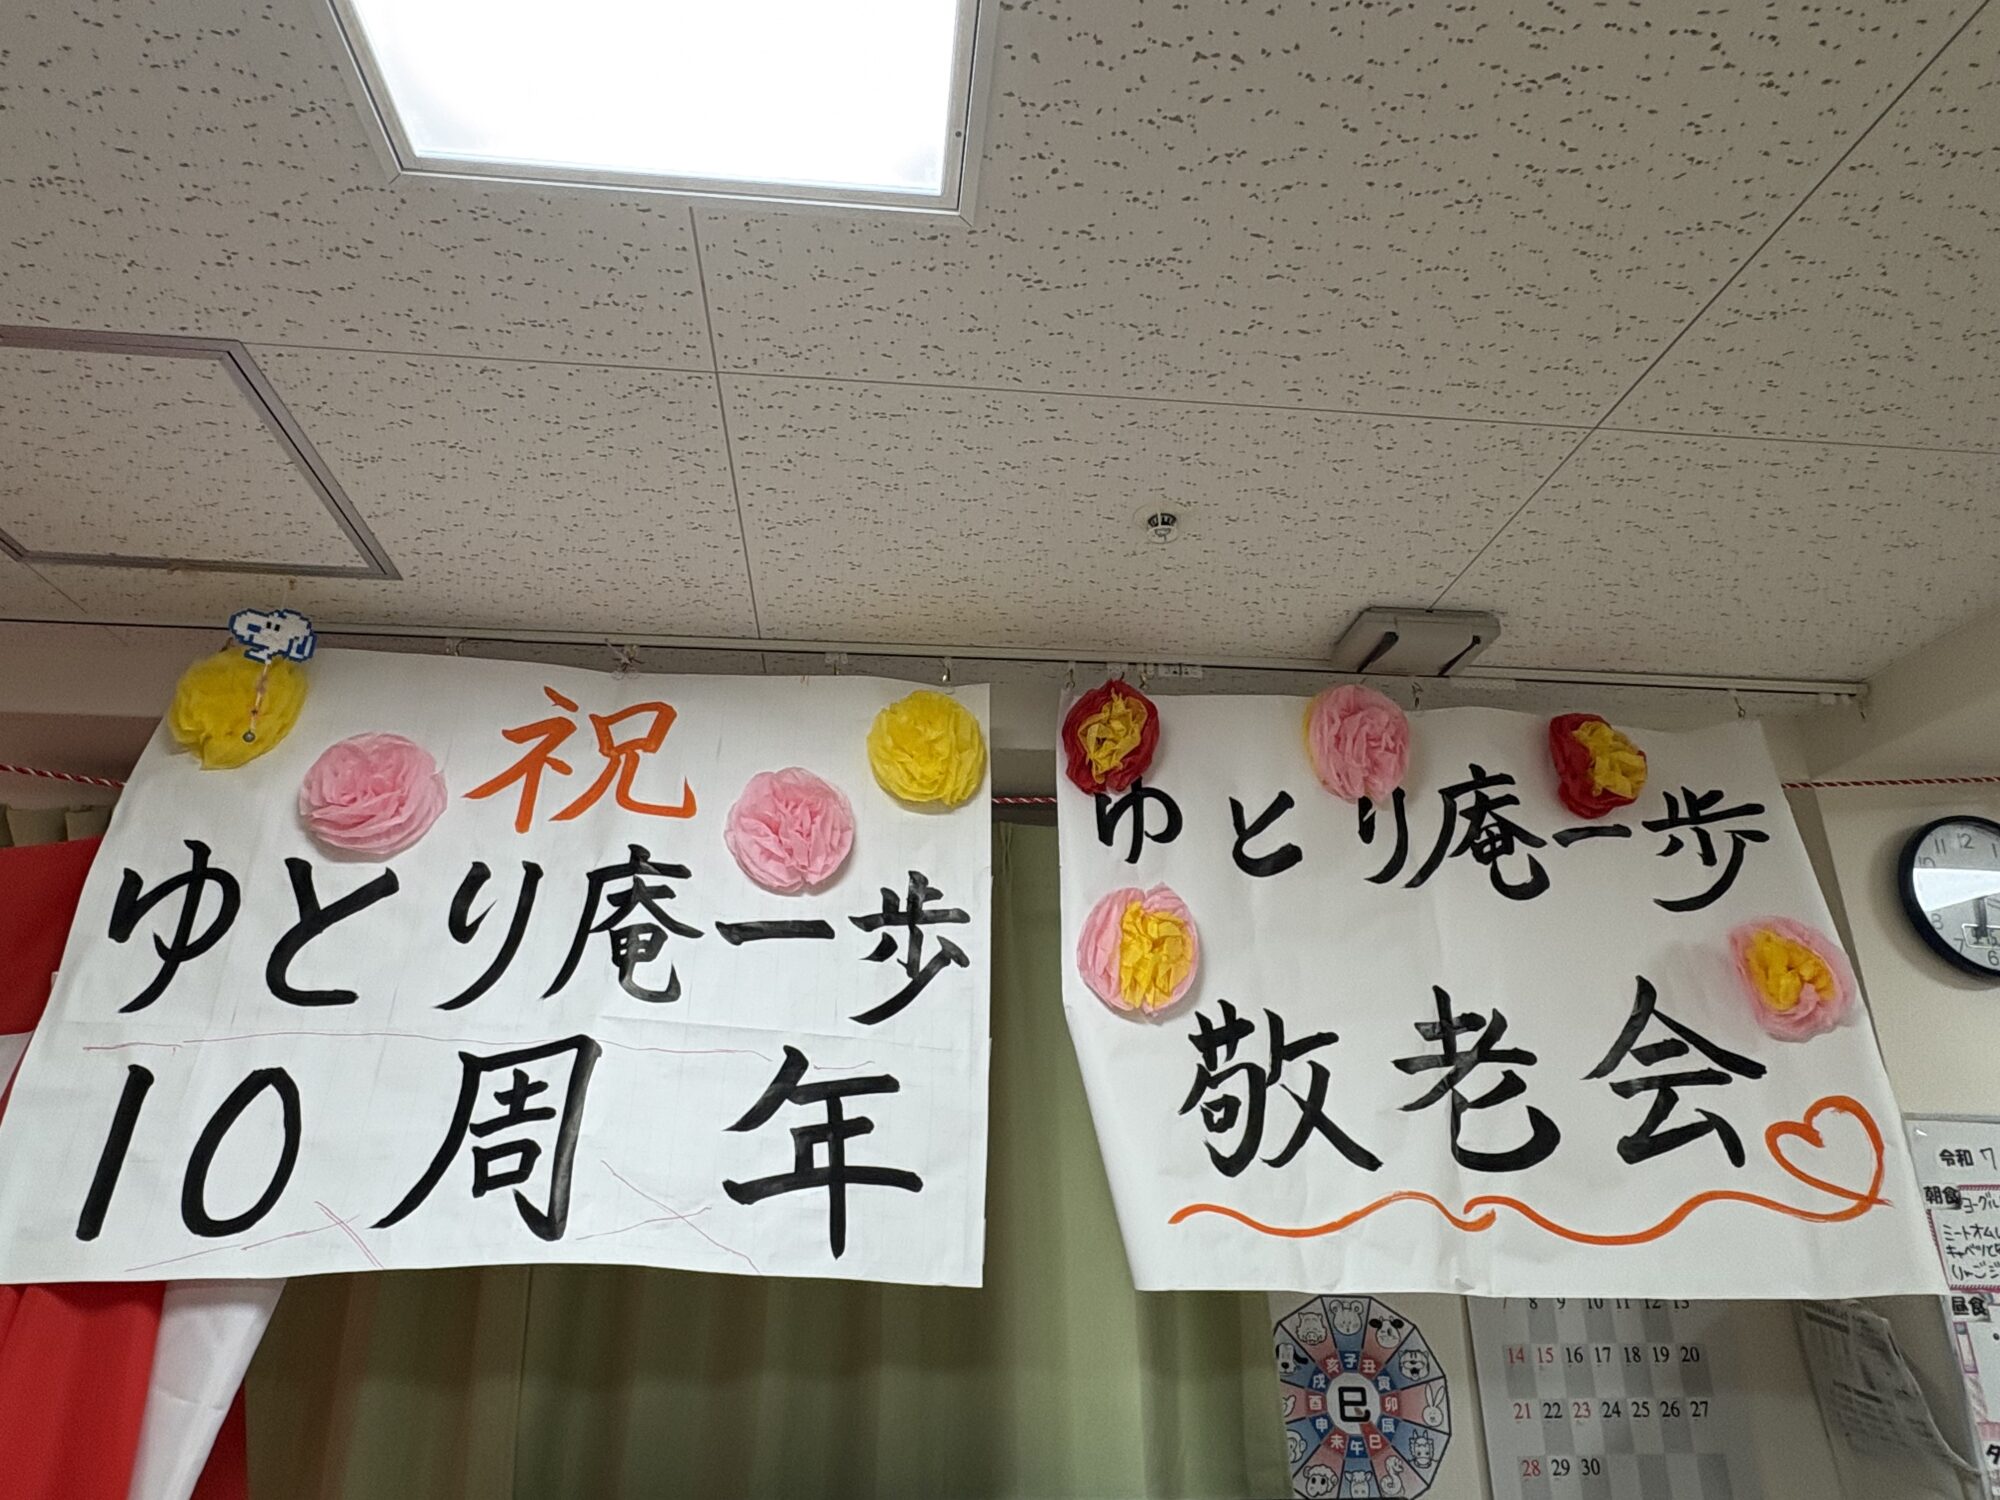 祝
ゆとり庵一歩
10周年
ゆとり庵一歩
敬老会
11 12 1
10
8
7
6
令和7
朝食
ヨーグル
ミートオム
キャベツ
りんごジ
昼食
7 8 9 10 11 12 13
14 15 16 17 18 19 20
21 22 23 24 25 26 27
28 29 30
巳
子
丑
寅
卯
辰
巳
午
未
申
酉
戌
亥